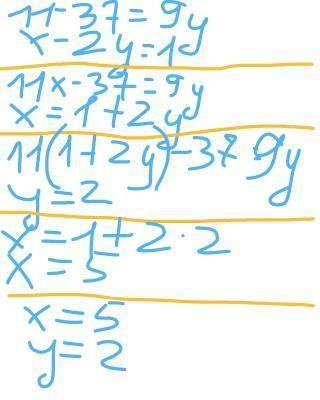 11-37=9y
x-2y=1
11x-37=9y
x=1+2y
11(1+2y)-37 9y
y=2
x=1+2·2
x=5
x=5
y=2